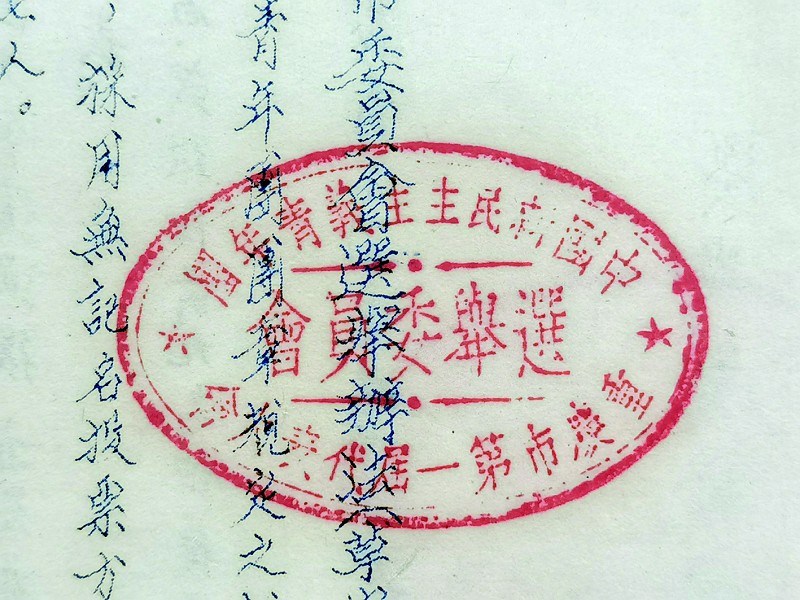 市委員會選舉辦法草
青年團團章規定之
採用無記名投票方
人。
中國新民主主義青年團
選舉委員會
重慶市第一屆代表